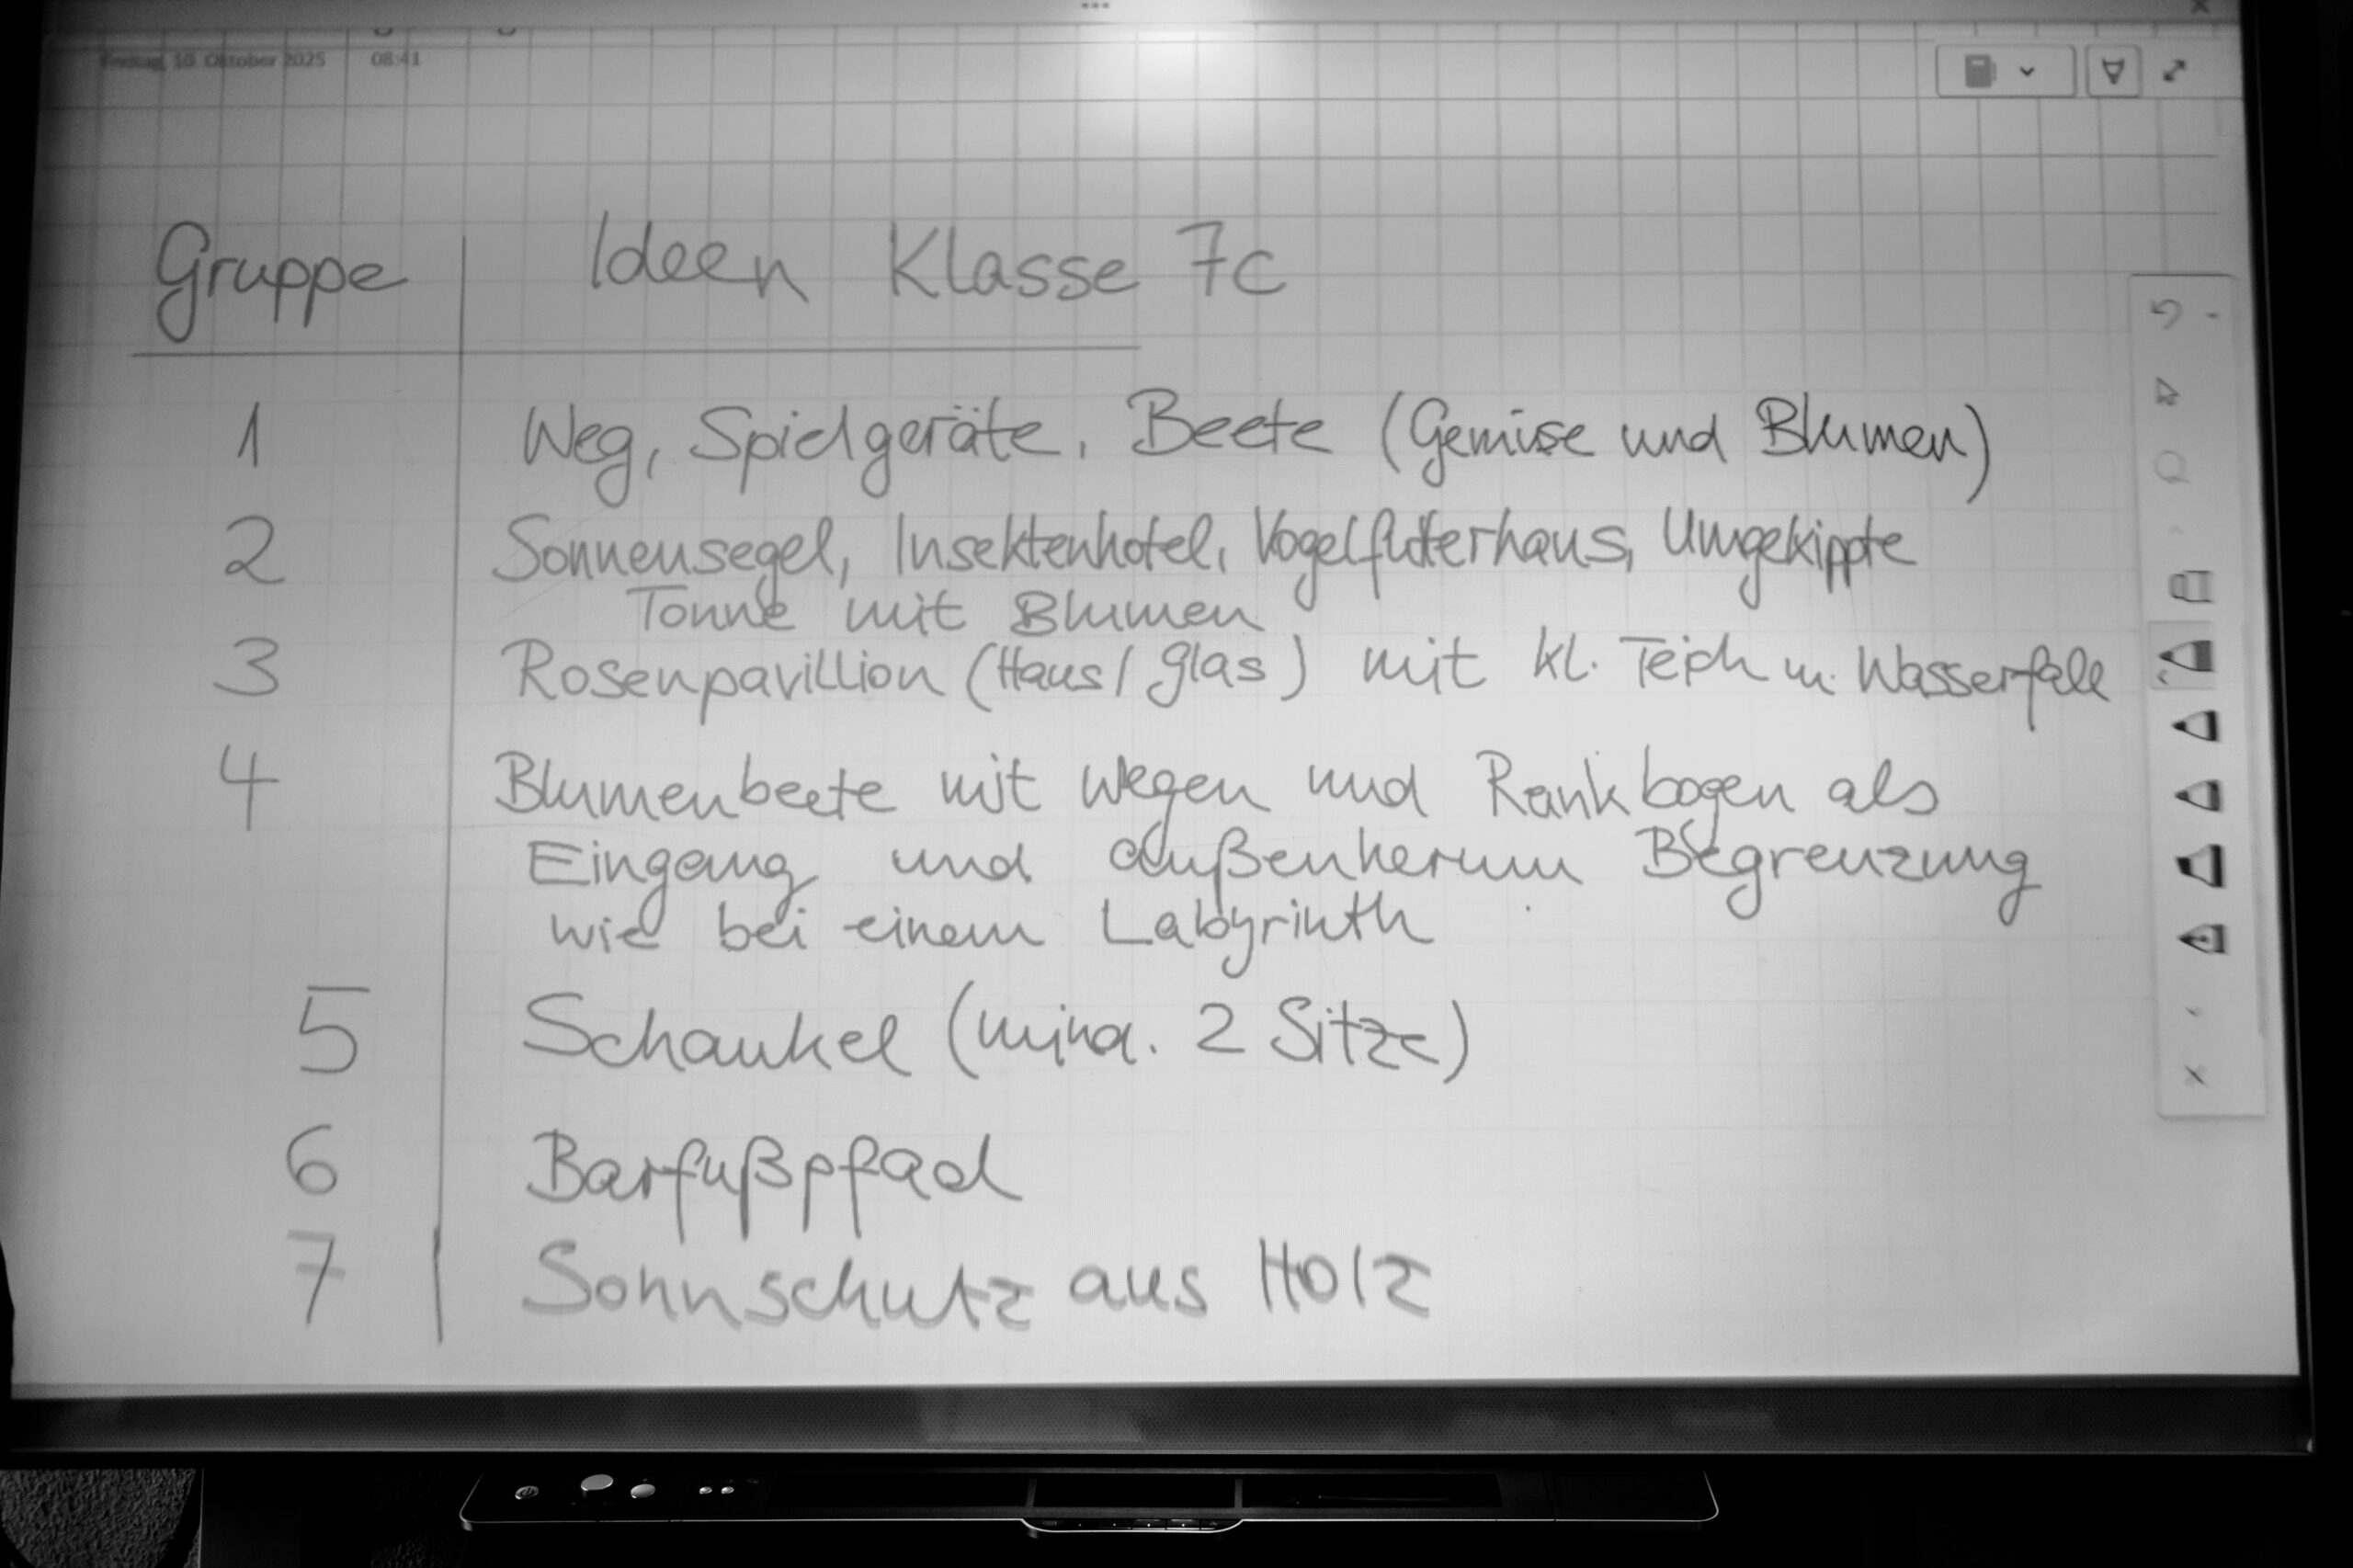 Freitag, 10. Oktober 2025 08:41
Gruppe Ideen Klasse 7c
1 Weg, Spielgeräte, Beete (Gemüse und Blumen)
2 Sonnensegel, Insektenhotel, Vogelfutterhaus, Umgekippte
Tonne mit Blumen
3 Rosenpavillion (Haus/Glas) mit kl. Teich u. Wasserfall
4 Blumenbeete mit Wegen und Rankbogen als
Eingang und außenherum Begrenzung
wie bei einem Labyrinth
5 Schaukel (mind. 2 Sitze)
6 Barfußpfad
7 Sonnschutz aus Holz